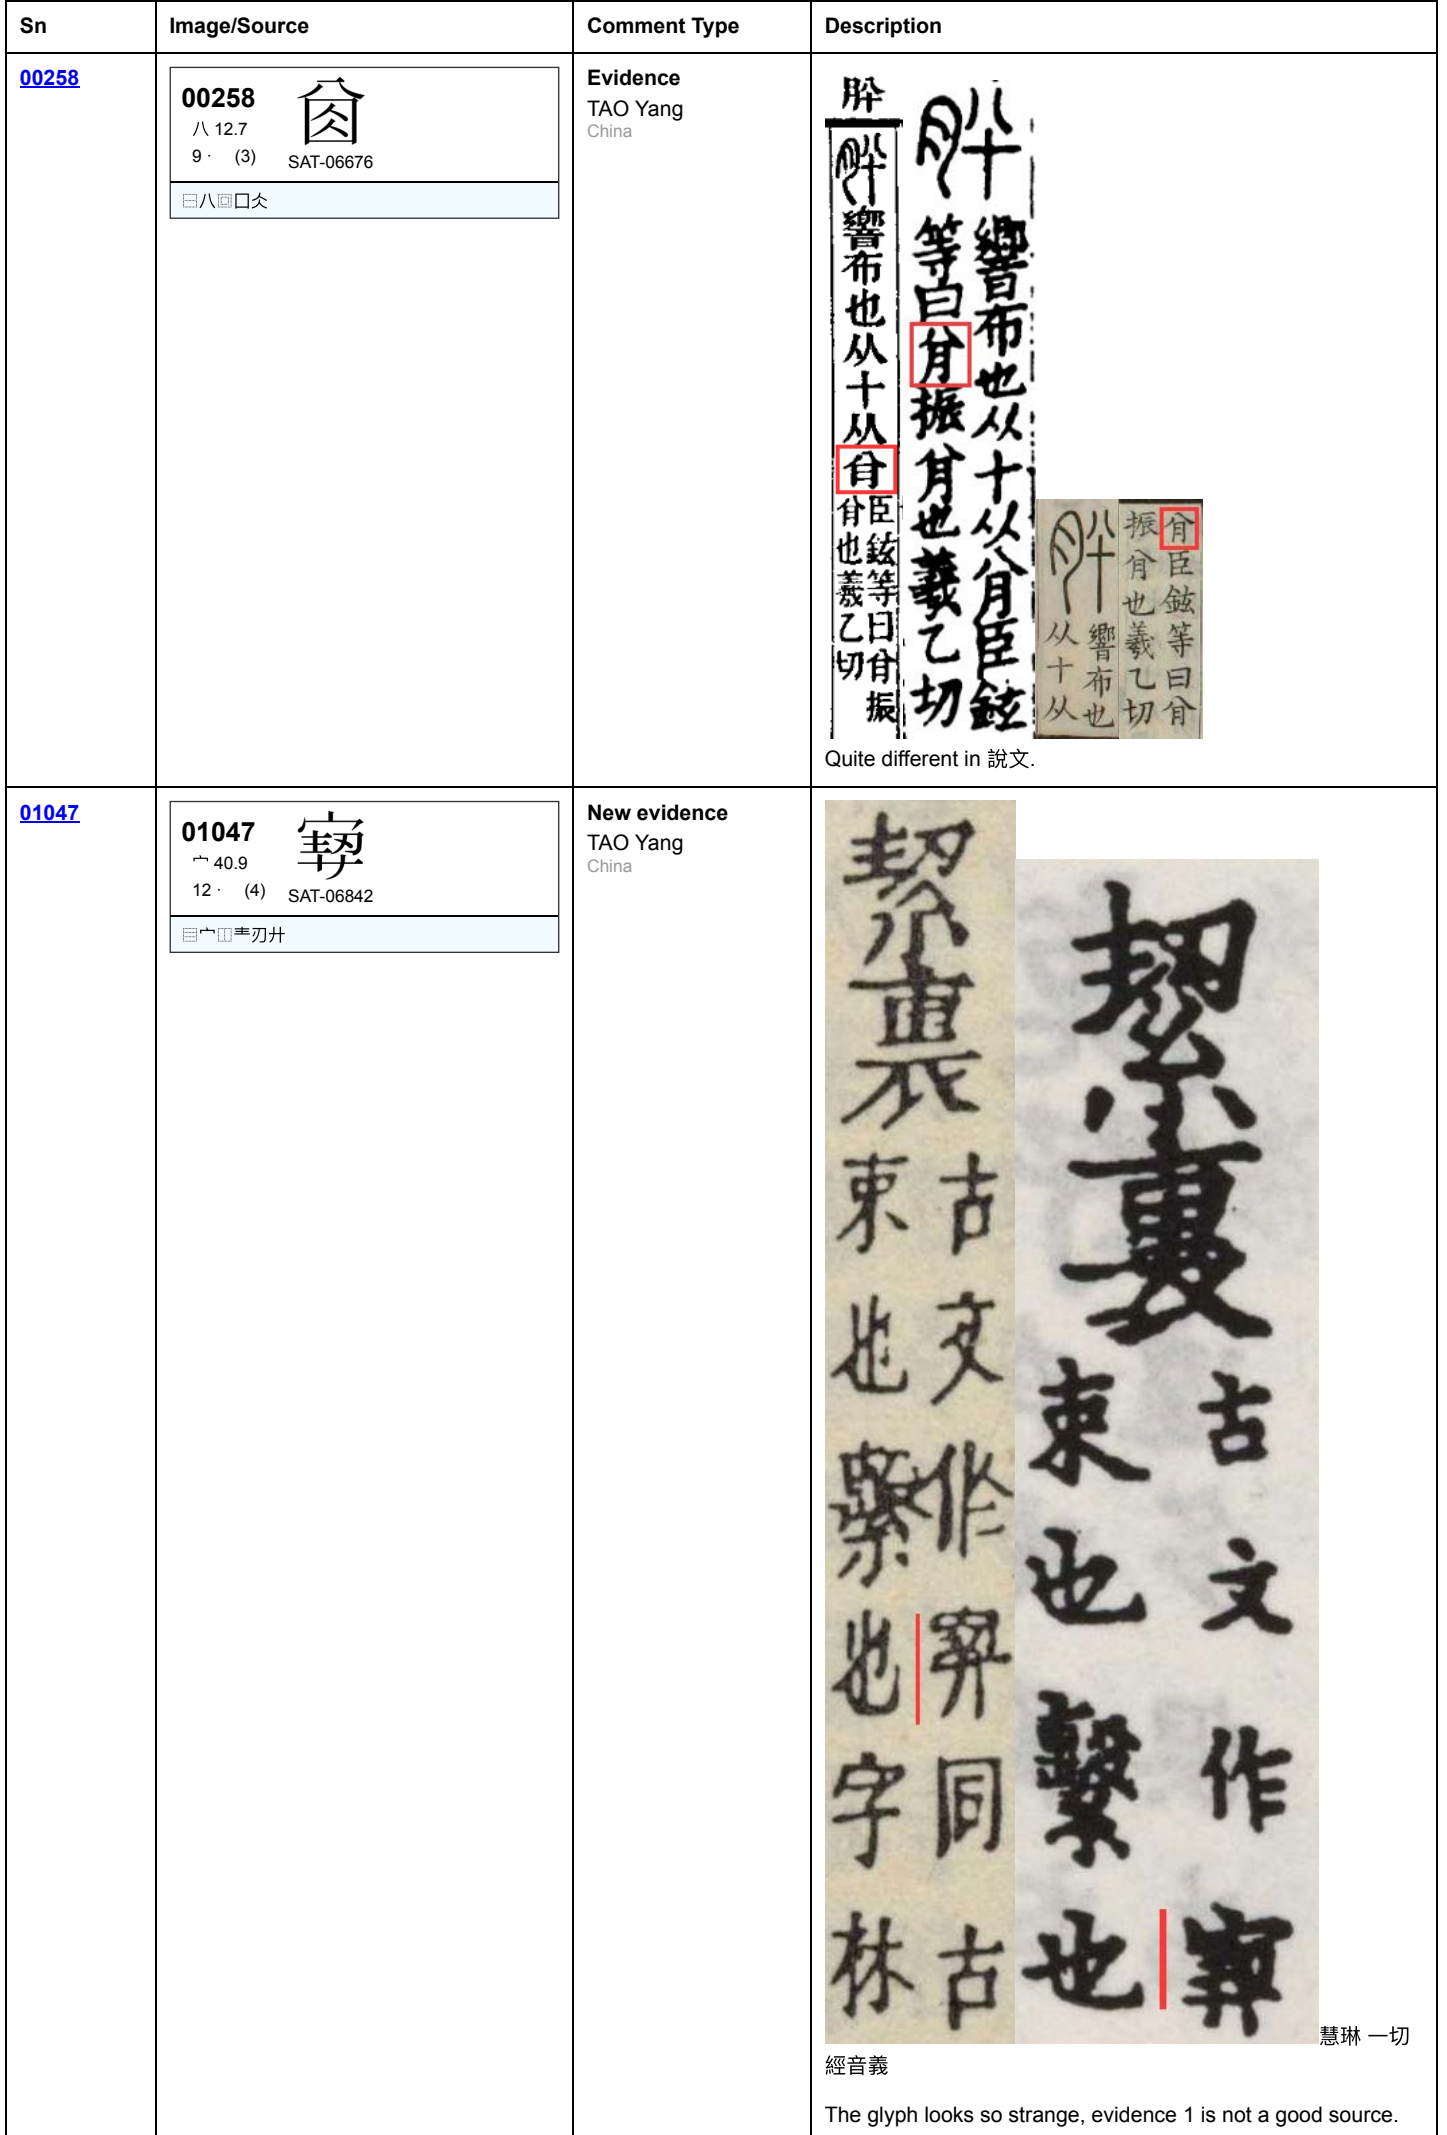 Sn Image/Source Comment Type Description
00258
00258
八 12.7
9 · (3)
SAT-06676
⿱八⿴囗仌
Evidence
TAO Yang
China
肸
響布也从十从㕣
臣鉉等曰
也羲乙切
振
響布也从十从
臣鉉
等曰
振
也羲乙切
響布也
从十从
臣鉉等曰
振
也羲乙切
Quite different in 說文.
01047
01047
宀 40.9
12 · (4)
SAT-06842
⿳宀⿰龶刃廾
New evidence
TAO Yang
China
絜裹
古文作
同古
束也繫也字林
絜裹
古文作
束也繫也
慧琳 一切
經音義
The glyph looks so strange, evidence 1 is not a good source.